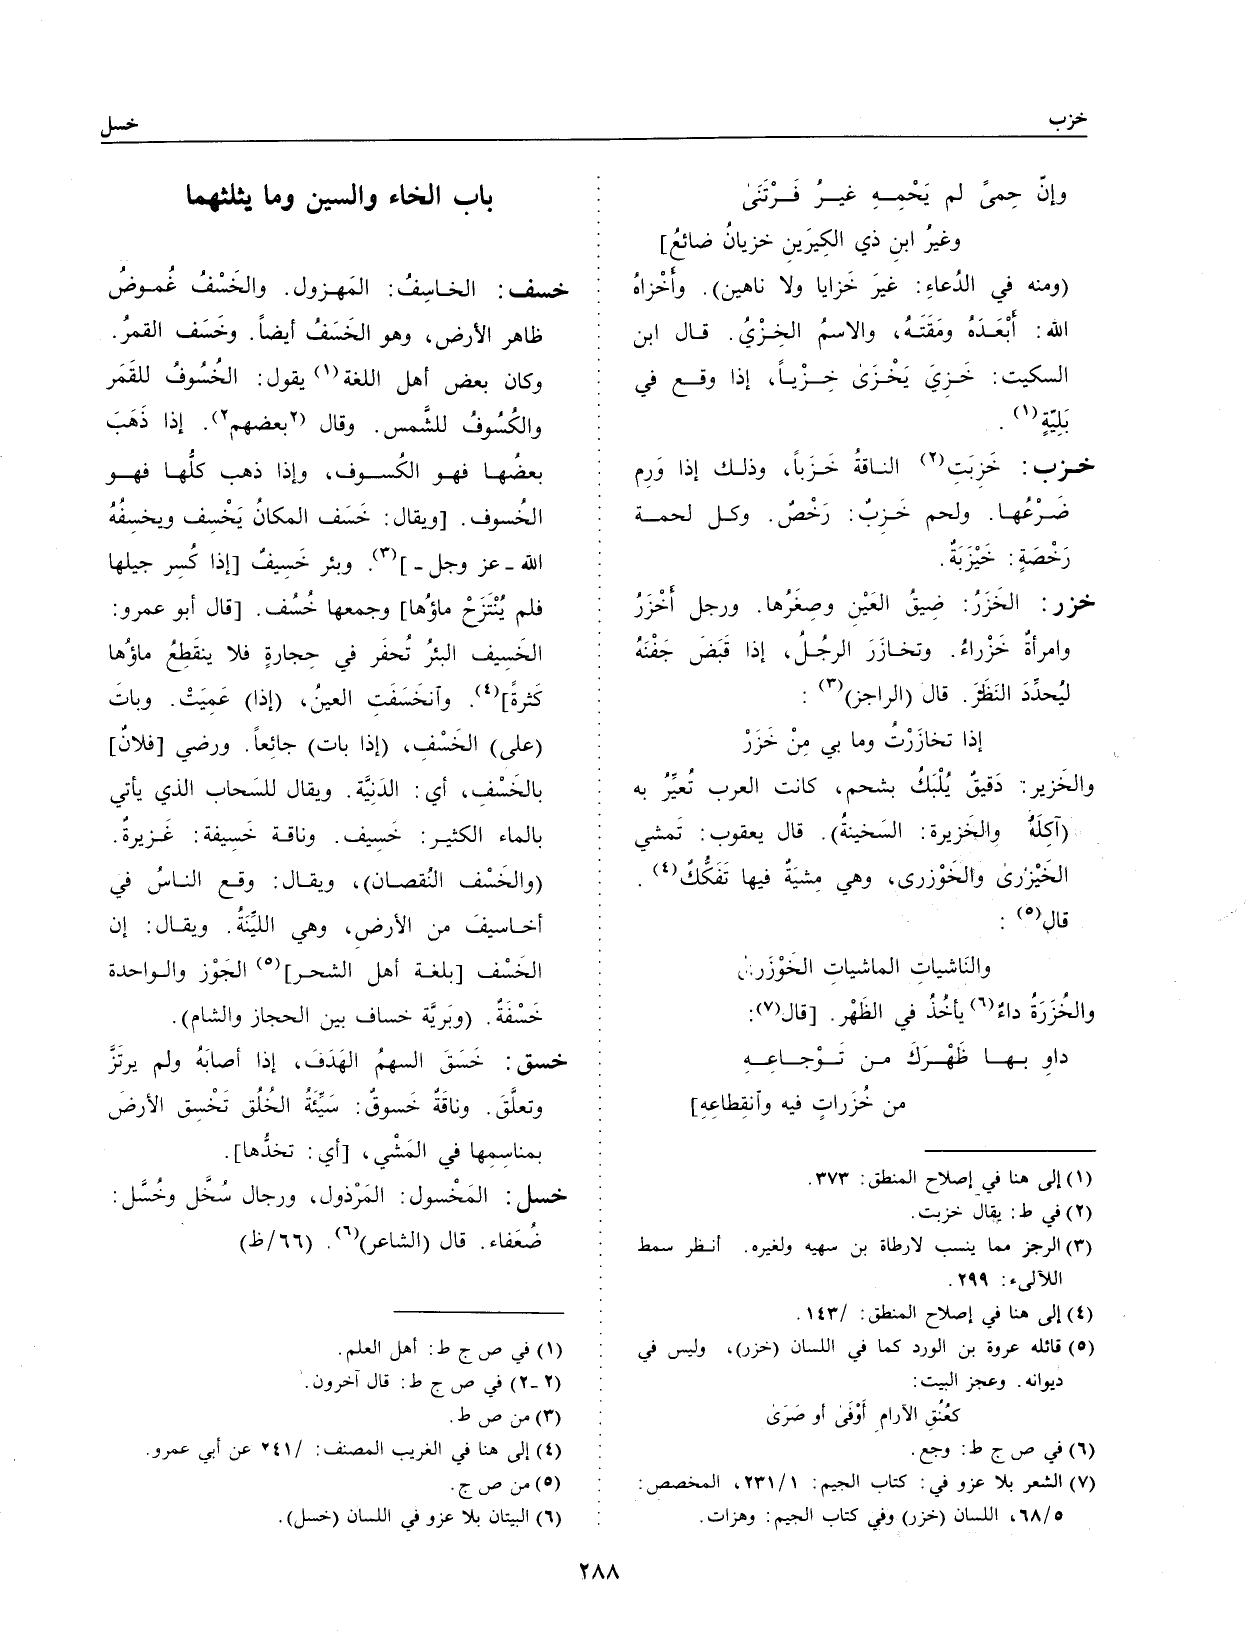 خزب
خسل
وإنّ حِمىً لم يَحْمِــهِ غيــرُ فَــرْتَنَىٰ
وغيرُ ابن ذي الكِيرَينِ خزيانُ ضائعُ]
(ومنه في الدُعاءِ: غيَر خَزايا ولا ناهين). وأَخْزاهُ
الله: أَبْعَدَهُ ومَقَتَـهُ، والاسمُ الخِـزْيُ. قـال ابن
السكيت: خَـزِيَ يَخْـزَىٰ خِـزْيـاً، إذا وقـع في
بَلِيّةٍ(١).
خـزب: خَزِبَتِ(٢) الناقةُ خَـزَباً، وذلـك إذا وَرِم
ضَـرْعُهـا. ولحم خَـزِبٌ: رَخْصٌ. وكـل لحمـة
رَخْصَةٍ: خَيْزَبَةٌ.
خزر: الخَزَرُ: ضِيقُ العَيْنِ وصِغَرُها. ورجل أَخْزَرُ
وامرأةٌ خَزْراءُ. وتخـازَرَ الرجُـلُ، إذا قَبَضَ جَفْنَهُ
ليُحدِّدَ النَظَرَ. قال (الراجز)(٣):
إذا تخازَرْتُ وما بي مِنْ خَزَرْ
والخَزير: دَقيقٌ يُلْبَكُ بشحم، كانت العرب تُعيِّرُ به
(آكِلَهُ والخَزيرة: السَخينةُ). قال يعقوب: تَمشي
الخَيْزَرىٰ والخَوْزرى، وهي مِشيَةٌ فيها تَفَكُّكٌ(٤).
قال(٥):
والناشياتِ الماشياتِ الخَوْزَرىٰ
والخُزَرَةُ داءٌ(٦) يأخُذُ في الظَهْر. [قال(٧):
داوِ بهـــا ظَهْـرَكَ مـن تَـوْجـاعِــهِ
من خُزَراتٍ فيه وآنقِطاعِهِ]
(١) إلى هنا في إصلاح المنطق: ٣٧٣.
(٢) في ط: يقال خزبت.
(٣) الرجز مما ينسب لارطاة بن سهيه ولغيره. أنـظر سمط
اللآلىء: ٢٩٩.
(٤) إلى هنا في إصلاح المنطق: /١٤٣.
(٥) قائله عروة بن الورد كما في اللسان (خزر)، وليس في
ديوانه. وعجز البيت:
كعُنُقِ الآرامِ أَوْفَىٰ أو صَرَىٰ
(٦) في ص ج ط: وجع.
(٧) الشعر بلا عزو في: كتاب الجيم: ٢٣١/١، المخصص:
٦٨/٥، اللسان (خزر) وفي كتاب الجيم: وهزات.
باب الخاء والسين وما يثلثهما
خسف: الخـاسِفُ: المَهـزول. والخَسْفُ غُمـوضُ
ظاهر الأرض، وهو الخَسَفُ أيضاً. وخَسَف القمرُ.
وكان بعض أهل اللغة(١) يقول: الخُسُوفُ للقَمَر
والكُسُوفُ للشَّمس. وقال (٢بعضهم٢). إذا ذَهَبَ
بعضُهـا فهـو الكُسـوف، وإذا ذهب كلُّهـا فهــو
الخُسوف. [ويقال: خَسَف المكانُ يَخْسِف ويخسِفُهُ
الله ـ عز وجل ـ](٣). وبئر خَسِيفٌ [إذا كُسِر جيلها
فلم يُنْتَزَحْ ماؤها] وجمعها خُسُف. [قال أبو عمرو:
الخَسِيف البئرُ تُحفَر في حِجارةٍ فلا ينقَطِعُ ماؤها
كَثرةً](٤). وآنخَسَفَتِ العينُ، (إذا) عَمِيَتْ. وباتَ
(على) الخَسْفِ، (إذا بات) جائعاً. ورضي [فلانٌ]
بالخَسْفِ، أي: الدَنيَّة. ويقال للسَحاب الذي يأتي
بالماء الكثيـر: خَسيف. وناقـة خَسِيفة: غَـزيرةٌ.
(والخَسْف النُقصان)، ويقـال: وقـع النـاسُ في
أخـاسيفَ من الأرض، وهي الليِّنَةُ. ويقـال: إن
الخَسْف [بلغـة أهـل الشحـر](٥) الجَوْز والـواحدة
خَسْفَةٌ. (وبَريَّة خساف بين الحجاز والشام).
خسق: خَسَقَ السهمُ الهَدَفَ، إذا أصابَهُ ولم يرتَزَّ
وتعلَّقَ. وناقَةٌ خَسوقٌ: سَيِّئَةُ الخُلُق تَخْسِق الأرضَ
بمناسِمِها في المَشْي، [أي: تخدُّها].
خسل: المَخْسول: المَرْذول، ورجال سُخَّل وخُسَّل:
ضُعَفاء. قال (الشاعر)(٦). (٦٦/ظ)
(١) في ص ج ط: أهل العلم.
(٢-٢) في ص ج ط: قال آخرون.
(٣) من ص ط.
(٤) إلى هنا في الغريب المصنف: /٢٤١ عن أبي عمرو.
(٥) من ص ج.
(٦) البيتان بلا عزو في اللسان (خسل).
٢٨٨